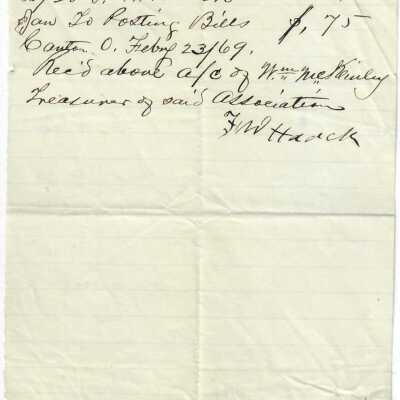 Jan To Posting Bills $,75
Canton O. Feby 23/69.
Rec'd above a/c of Wm McKinley
Treasurer of said Association
F W Haack